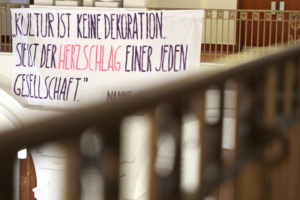 KULTUR IST KEINE DEKORATION.
SIE IST DER HERZSCHLAG EINER JEDEN
GESELLSCHAFT."